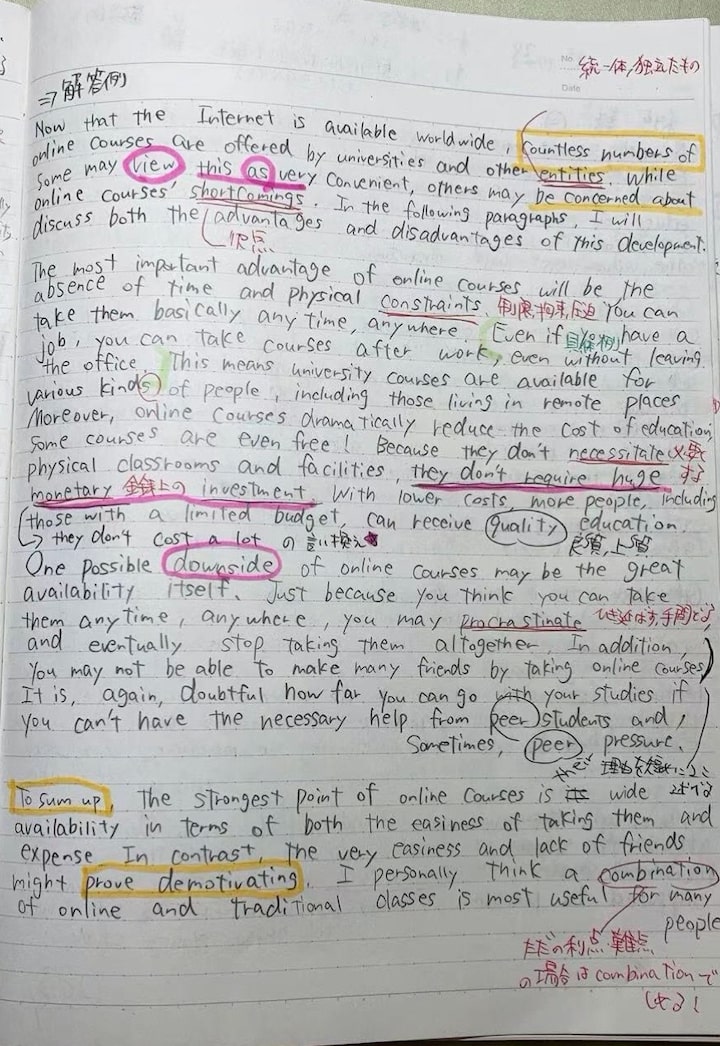 No. 統一体, 独立したもの
Date
⇒ 解答例
Now that the Internet is available worldwide, countless numbers of
online courses are offered by universities and other entities. While
some may view this as very convenient, others may be concerned about
online courses' shortcomings. In the following paragraphs, I will
discuss both the advantages and disadvantages of this development.
The most important advantage of online courses will be the
absence of time and physical constraints. 制限, 拘束, 圧迫 You can
take them basically any time, anywhere. Even if you have a
具体例
job, you can take courses after work, even without leaving
the office. This means university courses are available for
various kinds of people, including those living in remote places
Moreover, online courses dramatically reduce the cost of education,
Some courses are even free! Because they don't necessitate 必要と
する
physical classrooms and facilities, they don't require huge
monetary 金銭上の investment. With lower costs, more people, including
those with a limited budget, can receive quality education.
→ they don't cost a lot の言い換え 良質, 上質
One possible downside of online courses may be the great
availability itself. Just because you think you can take
them any time, anywhere, you may procrastinate ひき延ばす, 手間どる
and eventually stop taking them altogether. In addition,
You may not be able to make many friends by taking online courses
It is, again, doubtful how far you can go with your studies if
you can't have the necessary help from peer students and,
Sometimes, peer pressure.
To sum up, the strongest point of online courses is wide
availability in terms of both the easiness of taking them and
expense. In contrast, the very easiness and lack of friends
might prove demotivating. I personally think a combination
of online and traditional classes is most useful for many
people
ただの利点・難点
の場合は combination で
しめる!